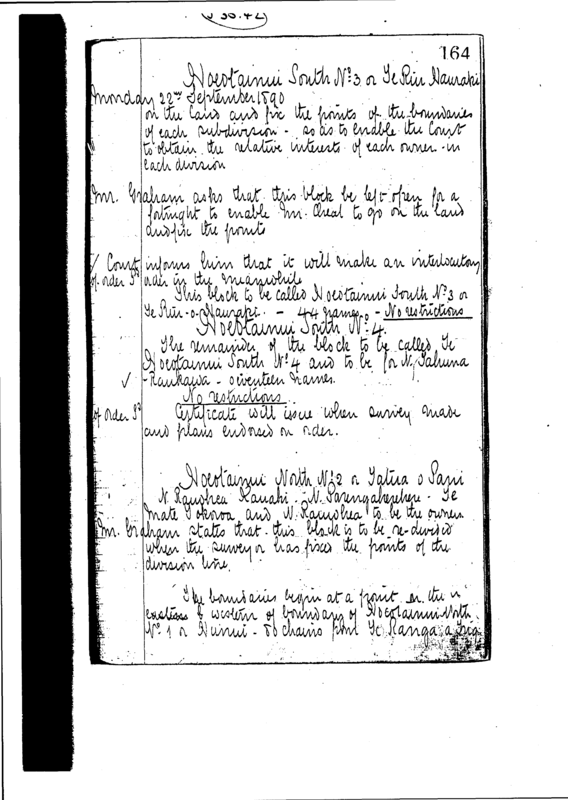 164
Hoeotainui South No 3 or Te Riu o Hauraki
Monday 22nd September 1890
on the land and fix the points of the boundaries
of each subdivision - so as to enable the Court
to obtain the relative interests of each owner in
each division
Mr. Graham asks that this block be left open for a
fortnight to enable Mr. to go on the land
and fix the points
Court informs him that it will make an interlocutory
order in the meanwhile
This block to be called Hoeotainui South No 3 or
Te Riu-o-Hauraki - 44 names - No restrictions
Hoeotainui South No 4.
The remainder of the block to be called Te
Hoeotainui South No 4 and to be for N. Tahuna
- Raukawa - seventeen names.
No restrictions
Certificate will issue when survey made
and plans endorsed on order.
Hoeotainui North No 2 or Tatua o
N. and N. to be the owners
Mr. Graham states that this block is to be re-divided
when the surveyor has fixed the points of the
division line.
The boundaries begin at a point on the
western boundary of Hoeotainui North
No 1 or - 50 chains from Te Ranga a Trig